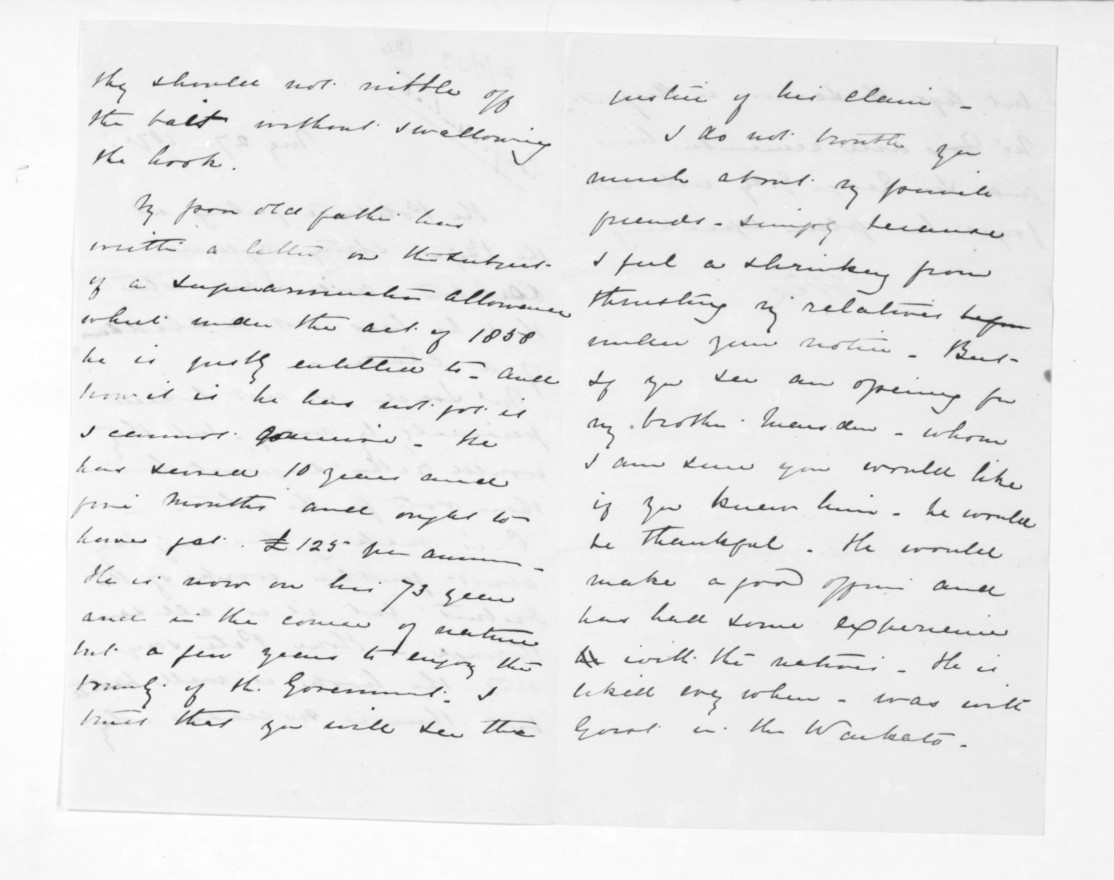 they should not nibble off
the bait without swallowing
the hook.
My poor old father has
written a letter on the subject
of a superannuation allowance
which under the act of 1858
he is justly entitled to - and
how it is he has not got it
I cannot conceive - He
has served 10 years and
five months and ought to
have got £125 per annum -
He is now in his 73 year
and in the course of nature
but a few years to enjoy the
bounty of the Government. I
trust that you will see the
justice of his claim -
I do not trouble you
much about my private
friends - simply because
I feel a shrinking from
thrusting my relatives before
under your notice - But
if you see an opening for
my brother Marsden - whom
I am sure you would like
if you knew him - he would
be thankful - He would
make a good officer and
has had some experience
with the natives - He is
liked every where - was with
Govt in the Waikato -